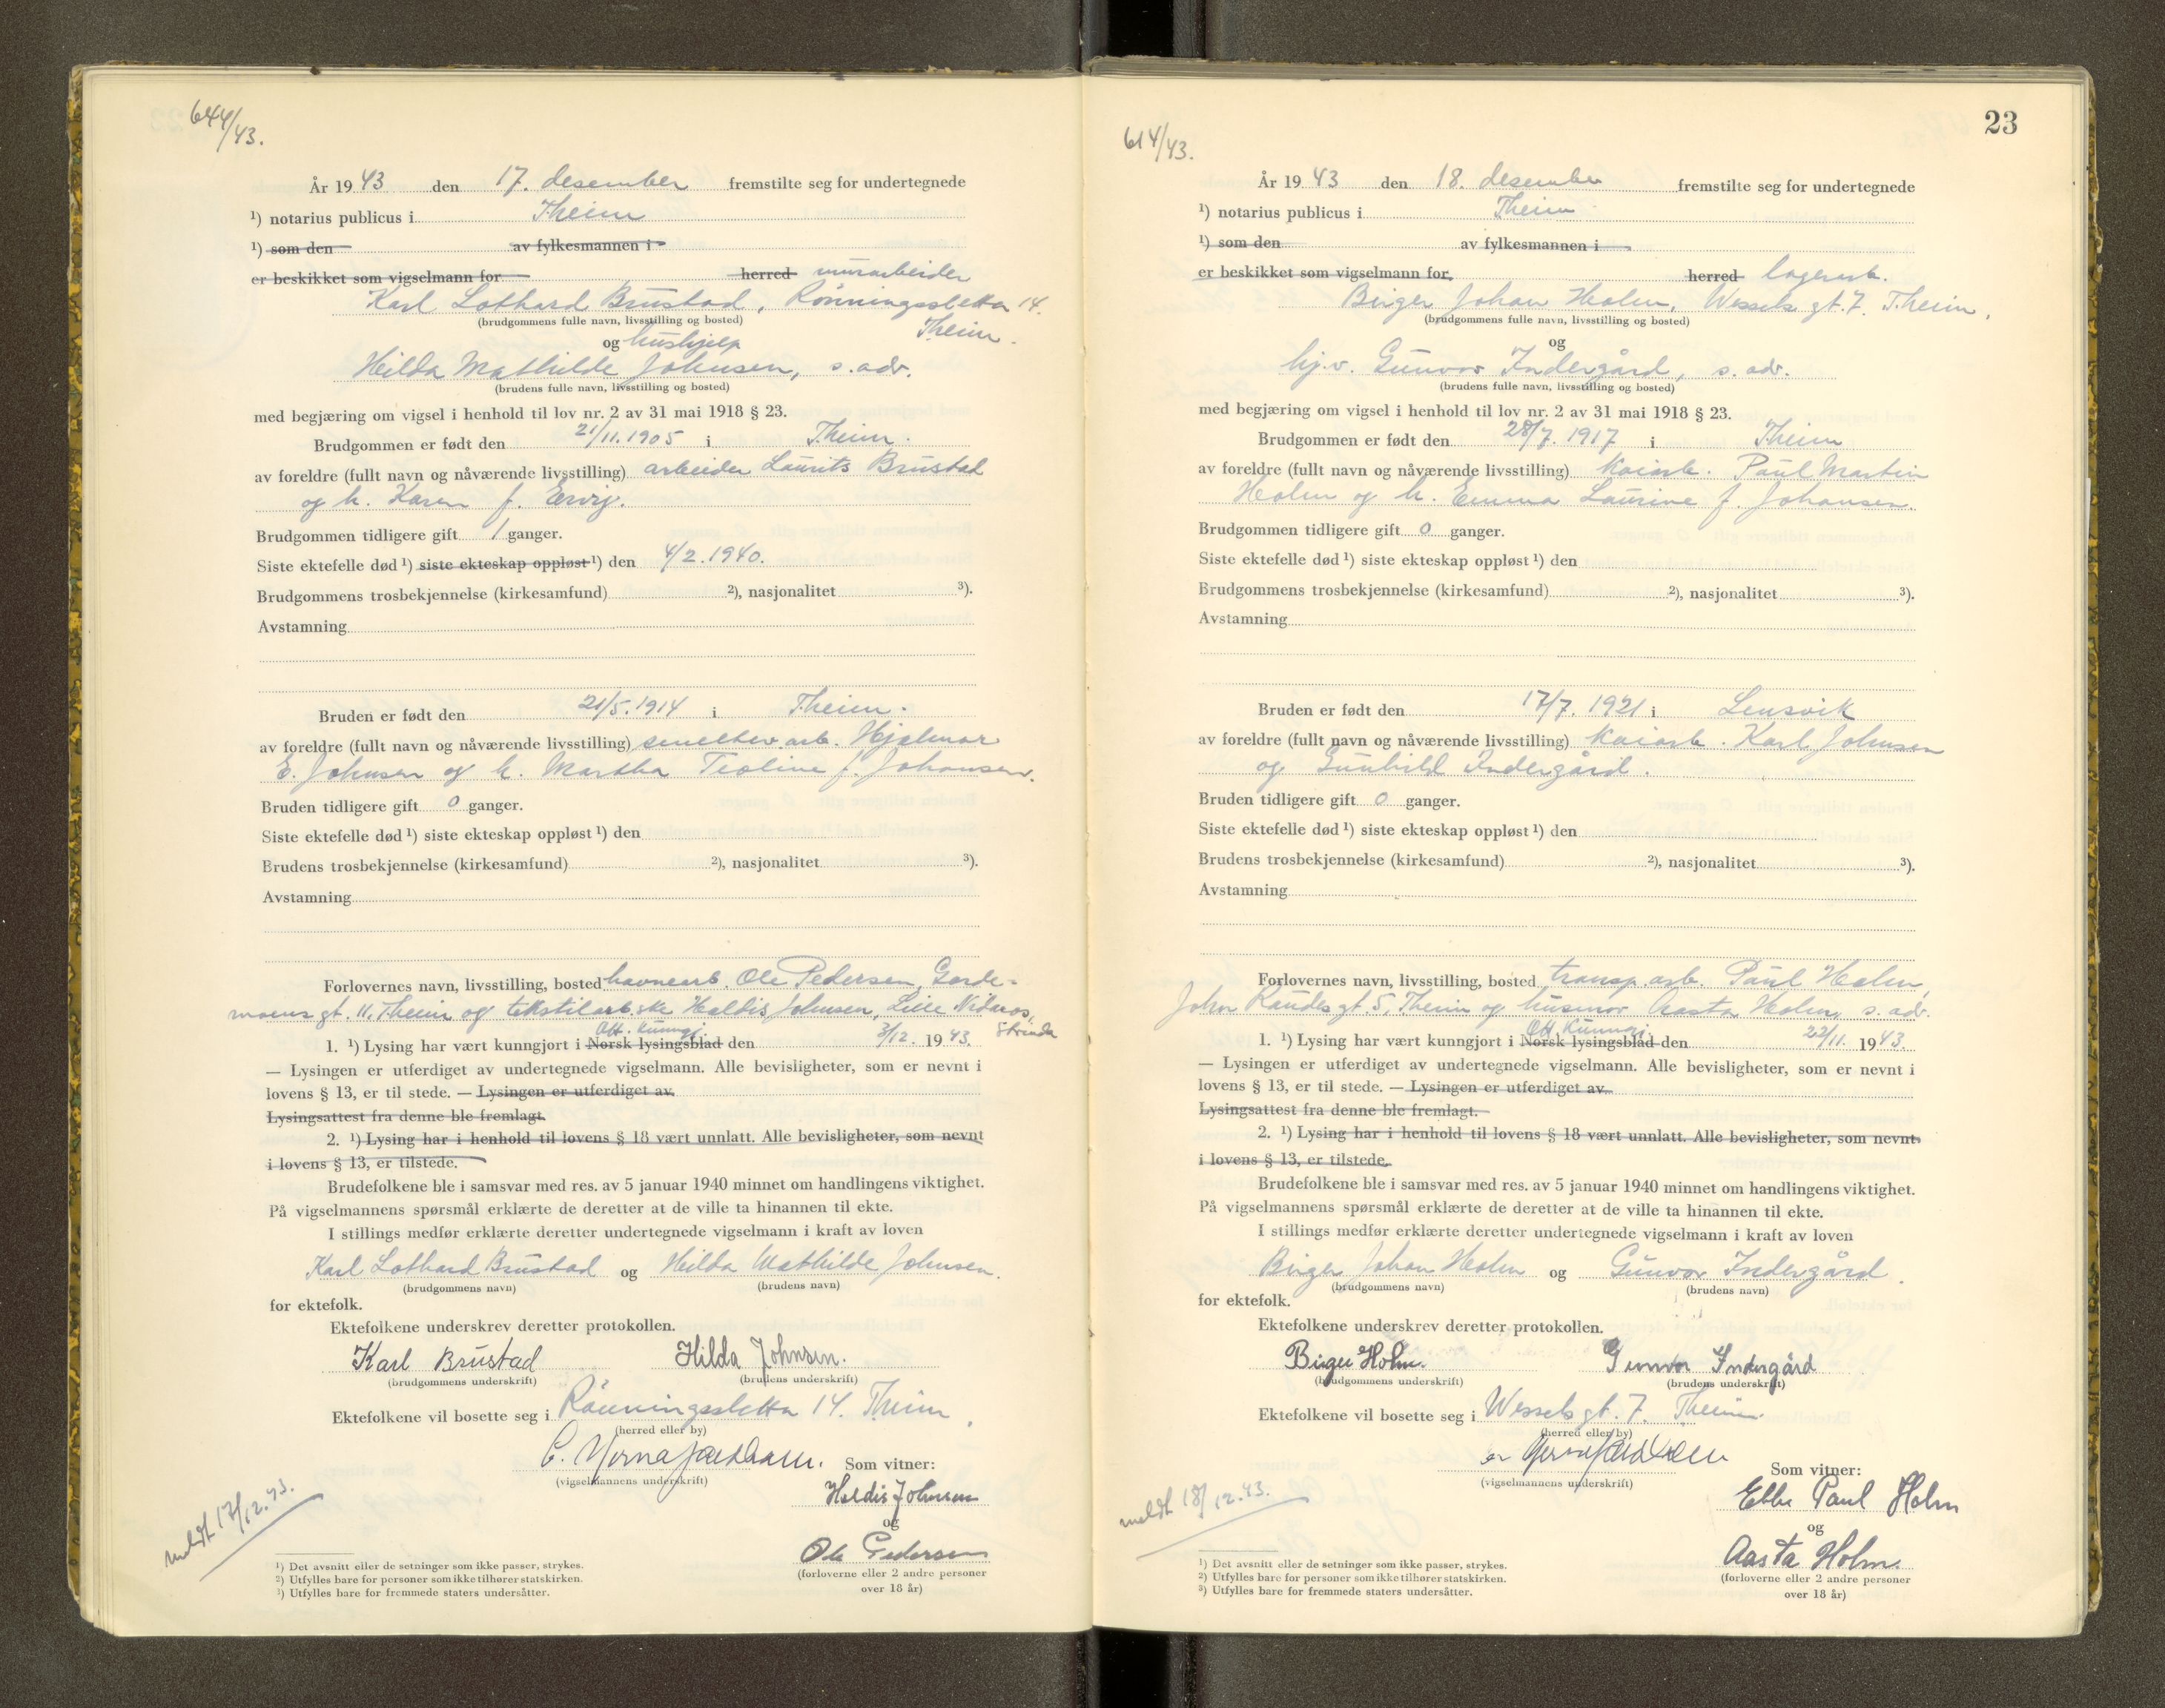 644/43.
År 1943 den 17. desember fremstilte seg for undertegnede
¹) notarius publicus i T.heim
¹) som den av fylkesmannen i
er beskikket som vigselmann for herred murarbeider
Karl Lothard Brustad, Rönningsletta 14.
(brudgommens fulle navn, livsstilling og bosted) T.heim.
og hushjelp
Hilda Mathilde Johnsen, s. adr.
(brudens fulle navn, livsstilling og bosted)
med begjæring om vigsel i henhold til lov nr. 2 av 31 mai 1918 § 23.
Brudgommen er født den 21/11.1905 i T.heim.
av foreldre (fullt navn og nåværende livsstilling) arbeider Laurits Brustad
og h. Karen f.
Brudgommen tidligere gift 1 ganger.
Siste ektefelle død ¹) siste ekteskap oppløst ¹) den 4/2.1940.
Brudgommens trosbekjennelse (kirkesamfund) ²), nasjonalitet ³).
Avstamning
Bruden er født den 21/5.1914 i T.heim.
av foreldre (fullt navn og nåværende livsstilling) smeltev.arb. Hjalmar
E. Johnsen og h. Martha Teoline f. Johansen.
Bruden tidligere gift 0 ganger.
Siste ektefelle død ¹) siste ekteskap oppløst ¹) den
Brudens trosbekjennelse (kirkesamfund) ²), nasjonalitet ³).
Avstamning
Forlovernes navn, livsstilling, bosted havnearb. Ole Pedersen, Garde-
moens gt. 11, T.heim og tekstilarbske Haldis Johnsen, Lille Nidaros,
Off. kunngj. Strinda
1. ¹) Lysing har vært kunngjort i Norsk lysingsblad den 3/12. 1943.
— Lysingen er utferdiget av undertegnede vigselmann. Alle bevisligheter, som er nevnt i
lovens § 13, er til stede. — Lysingen er utferdiget av
Lysingsattest fra denne ble fremlagt.
2. ¹) Lysing har i henhold til lovens § 18 vært unnlatt. Alle bevisligheter, som nevnt
i lovens § 13, er tilstede.
Brudefolkene ble i samsvar med res. av 5 januar 1940 minnet om handlingens viktighet.
På vigselmannens spørsmål erklærte de deretter at de ville ta hinannen til ekte.
I stillings medfør erklærte deretter undertegnede vigselmann i kraft av loven
Karl Lothard Brustad og Hilda Mathilde Johnsen.
(brudgommens navn) (brudens navn)
for ektefolk.
Ektefolkene underskrev deretter protokollen.
Karl Brustad Hilda Johnsen.
(brudgommens underskrift) (brudens underskrift)
Ektefolkene vil bosette seg i Rönningsletta 14. T.heim.
(herred eller by)
Som vitner:
(vigselmannens underskrift)
Haldis Johnsen
og
meldt 17/12.43.
Ole Pedersen
(forloverne eller 2 andre personer
over 18 år)
¹) Det avsnitt eller de setninger som ikke passer, strykes.
²) Utfylles bare for personer som ikke tilhører statskirken.
³) Utfylles bare for fremmede staters undersåtter.
23
614/43.
År 1943 den 18. desember fremstilte seg for undertegnede
¹) notarius publicus i T.heim
¹) som den av fylkesmannen i
er beskikket som vigselmann for herred lagerarb.
Birger Johan Holm, Wessels gt. 7. T.heim.
(brudgommens fulle navn, livsstilling og bosted)
og
hj.v. Gunvor Indergård, s. adr.
(brudens fulle navn, livsstilling og bosted)
med begjæring om vigsel i henhold til lov nr. 2 av 31 mai 1918 § 23.
Brudgommen er født den 28/7. 1917 i T.heim
av foreldre (fullt navn og nåværende livsstilling) Kaiarb. Paul Martin
Holm og h. Emma Laurine f. Johansen.
Brudgommen tidligere gift 0 ganger.
Siste ektefelle død ¹) siste ekteskap oppløst ¹) den
Brudgommens trosbekjennelse (kirkesamfund) ²), nasjonalitet ³).
Avstamning
Bruden er født den 17/7. 1921 i Lensvik
av foreldre (fullt navn og nåværende livsstilling) Kaiarb. Karl Johnsen
og Gunhild Indergård.
Bruden tidligere gift 0 ganger.
Siste ektefelle død ¹) siste ekteskap oppløst ¹) den
Brudens trosbekjennelse (kirkesamfund) ²), nasjonalitet ³).
Avstamning
Forlovernes navn, livsstilling, bosted transp.arb. Paul Holm,
John Raudes gt. 5, T.heim og husmor Aasta Holm, s. adr.
Off. Kunngj.
1. ¹) Lysing har vært kunngjort i Norsk lysingsblad den 22/11. 1943.
— Lysingen er utferdiget av undertegnede vigselmann. Alle bevisligheter, som er nevnt i
lovens § 13, er til stede. — Lysingen er utferdiget av
Lysingsattest fra denne ble fremlagt.
2. ¹) Lysing har i henhold til lovens § 18 vært unnlatt. Alle bevisligheter, som nevnt
i lovens § 13, er tilstede.
Brudefolkene ble i samsvar med res. av 5 januar 1940 minnet om handlingens viktighet.
På vigselmannens spørsmål erklærte de deretter at de ville ta hinannen til ekte.
I stillings medfør erklærte deretter undertegnede vigselmann i kraft av loven
Birger Johan Holm og Gunvor Indergård.
(brudgommens navn) (brudens navn)
for ektefolk.
Ektefolkene underskrev deretter protokollen.
Birger Holm. Gunvor Indergård
(brudgommens underskrift) (brudens underskrift)
Ektefolkene vil bosette seg i Wessels gt. 7. T.heim.
(herred eller by)
Som vitner:
(vigselmannens underskrift)
Ebbe Paul Holm
og
meldt 18/12.43.
Aasta Holm.
(forloverne eller 2 andre personer
over 18 år)
¹) Det avsnitt eller de setninger som ikke passer, strykes.
²) Utfylles bare for personer som ikke tilhører statskirken.
³) Utfylles bare for fremmede staters undersåtter.